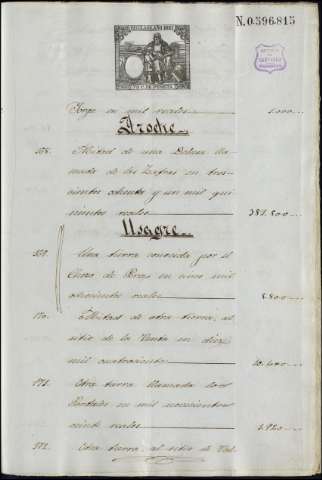 N. 0.396.815
en mil reales 1.000
Aroche
Mitad de una Dehesa lla-
mada de las en tres-
cientos ochenta y un mil qui-
nientos reales 381.500
Usagre
Una tierra conocida por el
Chozo de en cinco mil
ochocientos reales 5.800
170. Mitad de otra tierra, al
sitio de la en diez
mil cuatrocientos 10.400
171. Otra tierra llamada los
en mil novecientos
veinte reales 1.920
172. Otra tierra, al sitio de